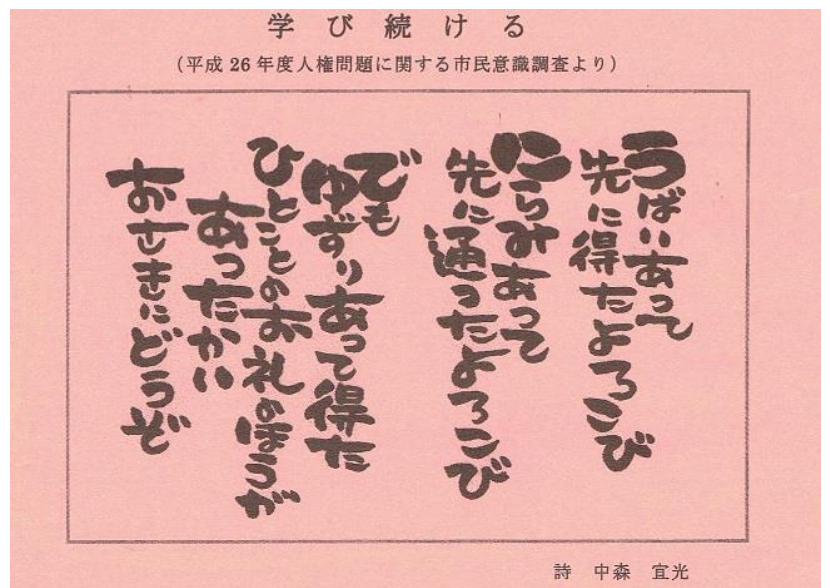 学び続ける
(平成26年度人権問題に関する市民意識調査より)
うばいあって
先に得たよろこび
にらみあって
先に通ったよろこび
でも
ゆずりあって得た
ひとことのお礼のほうが
あったかい
おさきにどうぞ
詩 中森 宜光